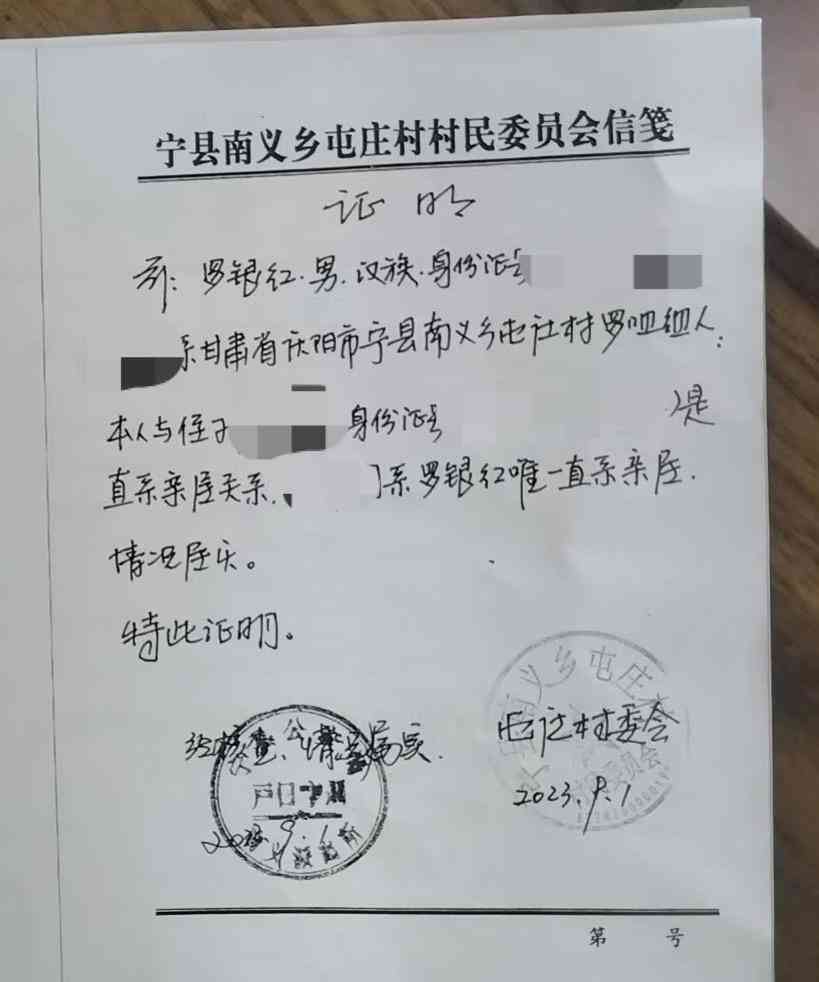 宁县南义乡屯庄村村民委员会信笺
证明
兹: 罗银红.男.汉族.身份证号
系甘肃省庆阳市宁县南义乡屯庄村罗咀组人:
本人与侄子 身份证号 是
直系亲属关系. 系罗银红唯一直系亲属.
情况属实。
特此证明。
南义乡屯庄
委员会
屯庄村委会
2023.9.1
经核查、情况属实.
户口专用
9.1
第 号